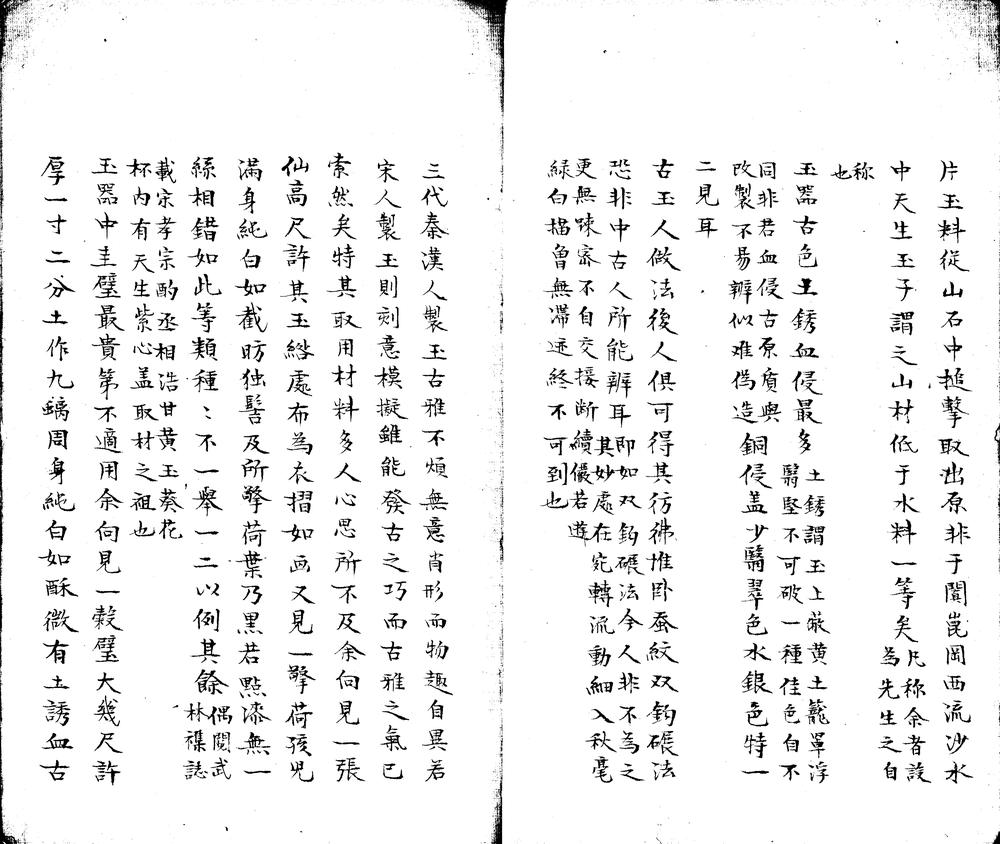 片玉料従山石中搥擊取出原非于闐崑岡西流沙水
中天生玉子謂之山材低于水料一等矣凡称余者設
為先生之自
称
也
玉器古色土銹血侵最多土銹謂玉上蔽黄土籠罩浮
翳堅不可破一種佳色自不
同非若血侵古原質與
改製不易辨似难偽造銅侵盖少翳翠色水銀色特一
二見耳
古玉人做法後人俱可得其彷彿惟卧蚕紋双鈎碾法
恐非中古人所能辨耳即如双鈎碾法今人非不為之
其妙處在宛轉流動細入秋毫
更無踈密不自交接断續儼若遊
緑白描魯無滯迹終不可到也
三代秦漢人製玉古雅不煩無意肖形而物趣自異若
宋人製玉則刻意模擬雖能發古之巧而古雅之氣已
索然矣特其取用材料多人心思所不及余向見一張
仙高尺許其玉綹處布為衣摺如画又見一擎荷孩児
滿身純白如截昉独髻及所擎荷葉乃黒若點漆無一
絲相錯如此等類種〻不一舉一二以例其餘偶閱武
林襍誌
載宋孝宗酌丞相浩甘黄玉葵花
杯内有天生紫心盖取材之祖也
玉器中圭璧最貴第不適用余向見一穀璧大幾尺許
厚一寸二分土作九鷸周身純白如酥微有土誘血古